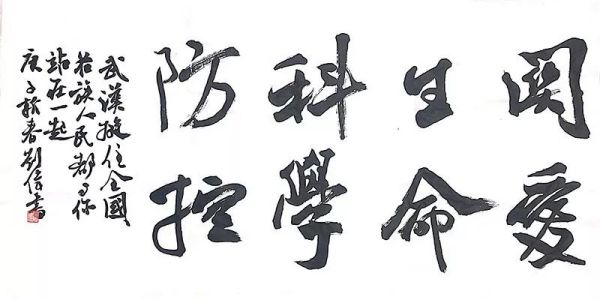 関愛
生命
科學
防控
武漢挺住全國
各族人民都与你
站在一起
庚子新春劉書